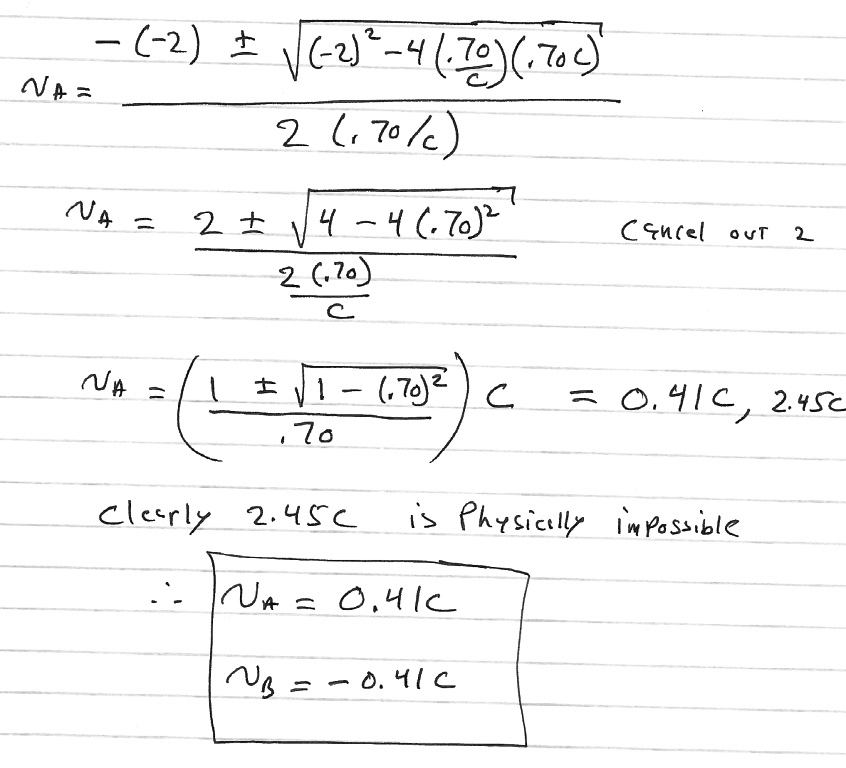 N_A = (-(-2) ± √((-2)² - 4(.70/C)(.70C))) / (2(.70/C))
N_A = (2 ± √(4 - 4(.70)²)) / (2(.70)/C) Cancel out 2
N_A = ((1 ± √(1 - (.70)²)) / .70) C = 0.41C, 2.45C
Clearly 2.45C is Physically impossible
∴ N_A = 0.41C
N_B = -0.41C